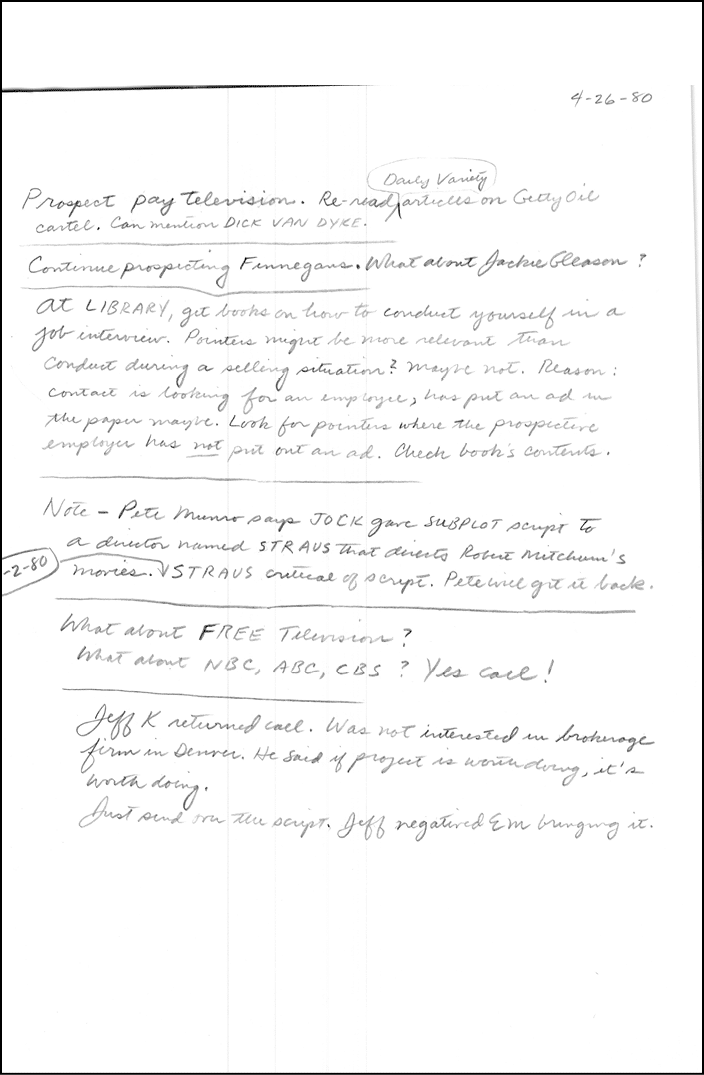 4-26-80
Daily Variety
Prospect pay television. Re-read articles on Getty Oil
cartel. Can mention DICK VAN DYKE.
Continue prospecting Finnegans. What about Jackie Gleason?
At LIBRARY, get books on how to conduct yourself in a
job interview. Pointers might be more relevant than
conduct during a selling situation? Maybe not. Reason:
contact is looking for an employee, has put an ad in
the paper maybe. Look for pointers where the prospective
employer has not put out an ad. Check book's contents.
Note - Pete Munro says JOCK gave SUBPLOT script to
a director named STRAUS that directs Robert Mitchum's
-2-80
movies. STRAUS critical of script. Pete will get it back.
What about FREE Television?
What about NBC, ABC, CBS? Yes call!
Jeff K returned call. Was not interested in brokerage
firm in Denver. He said if project is worth doing, it's
worth doing.
Just send over the script. Jeff negatived EM bringing it.